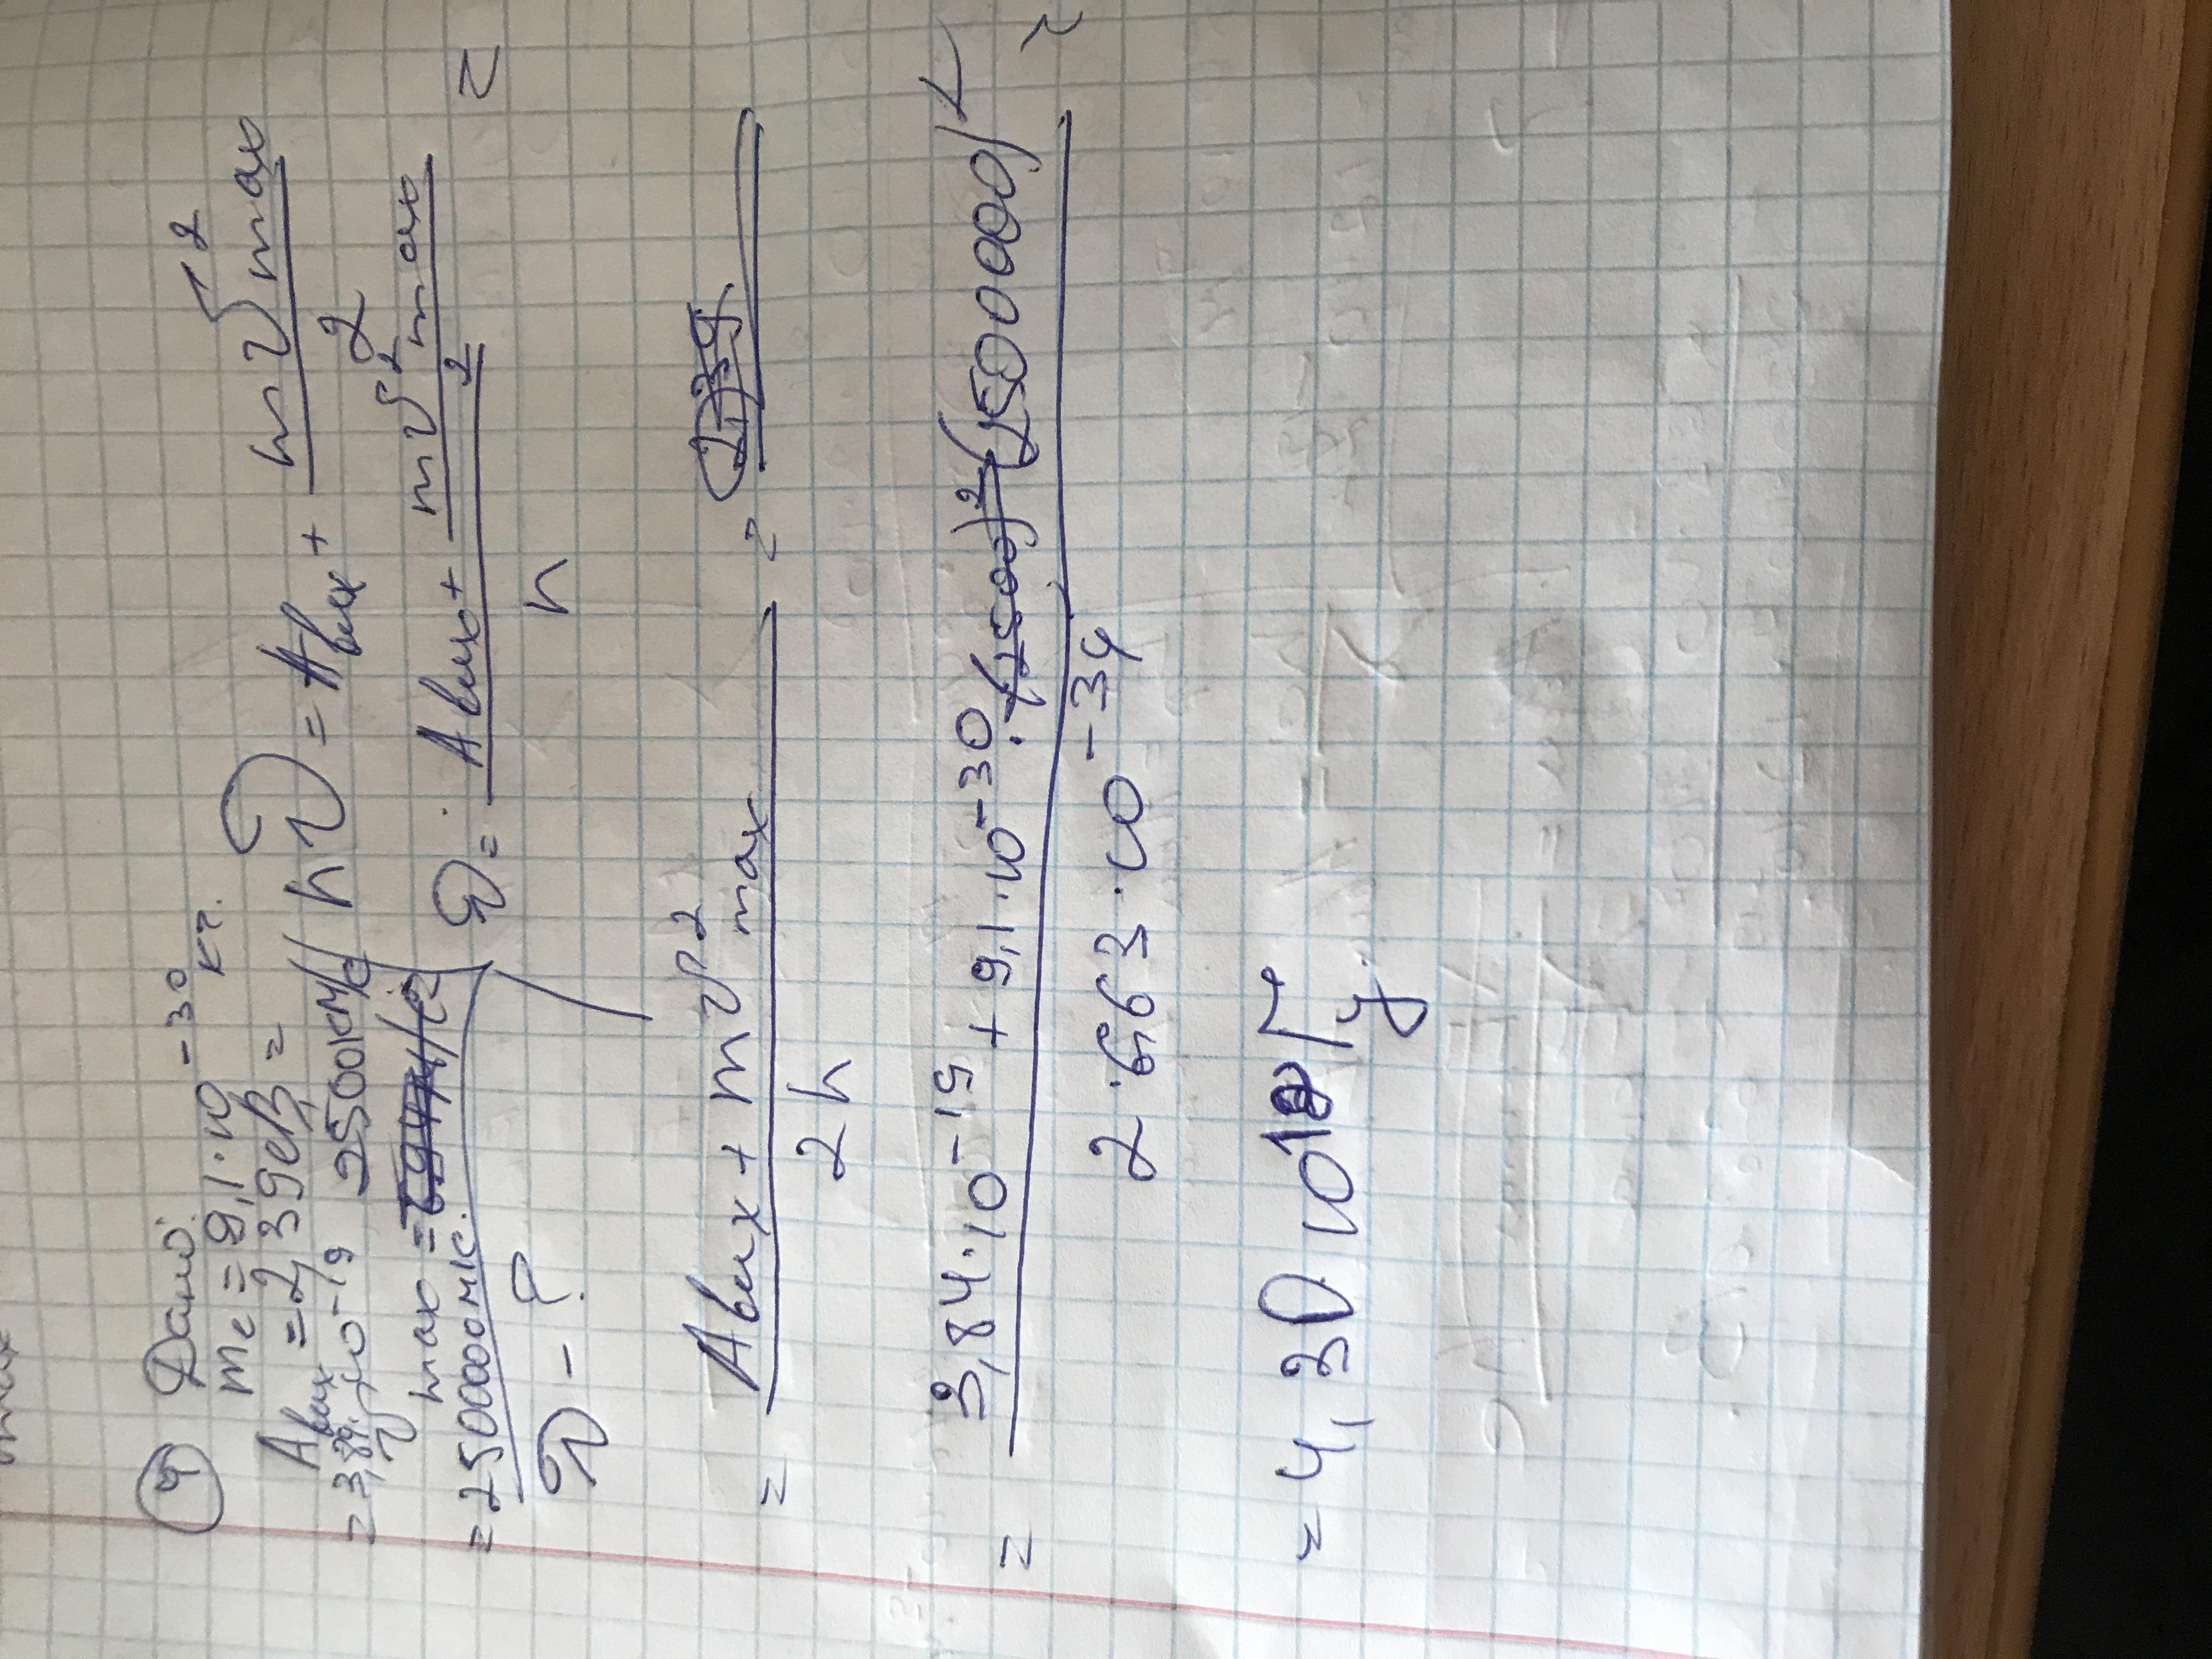 ④ Дано:
mₑ = 9,1·10⁻³⁰ кг.
Aвых = 2,39 еВ =
= 3,84·10⁻¹⁹
υmax = 2500 км/с
= 2500000 м/с.
ν - ?
hν = Aвых + mυ²max / 2
ν = (Aвых + mυ²max / 2) / h =
= (Aвых + mυ²max) / 2h =
= (3,84·10⁻¹⁹ + 9,1·10⁻³⁰ · (2500000)²) / (2·6,63·10⁻³⁴) =